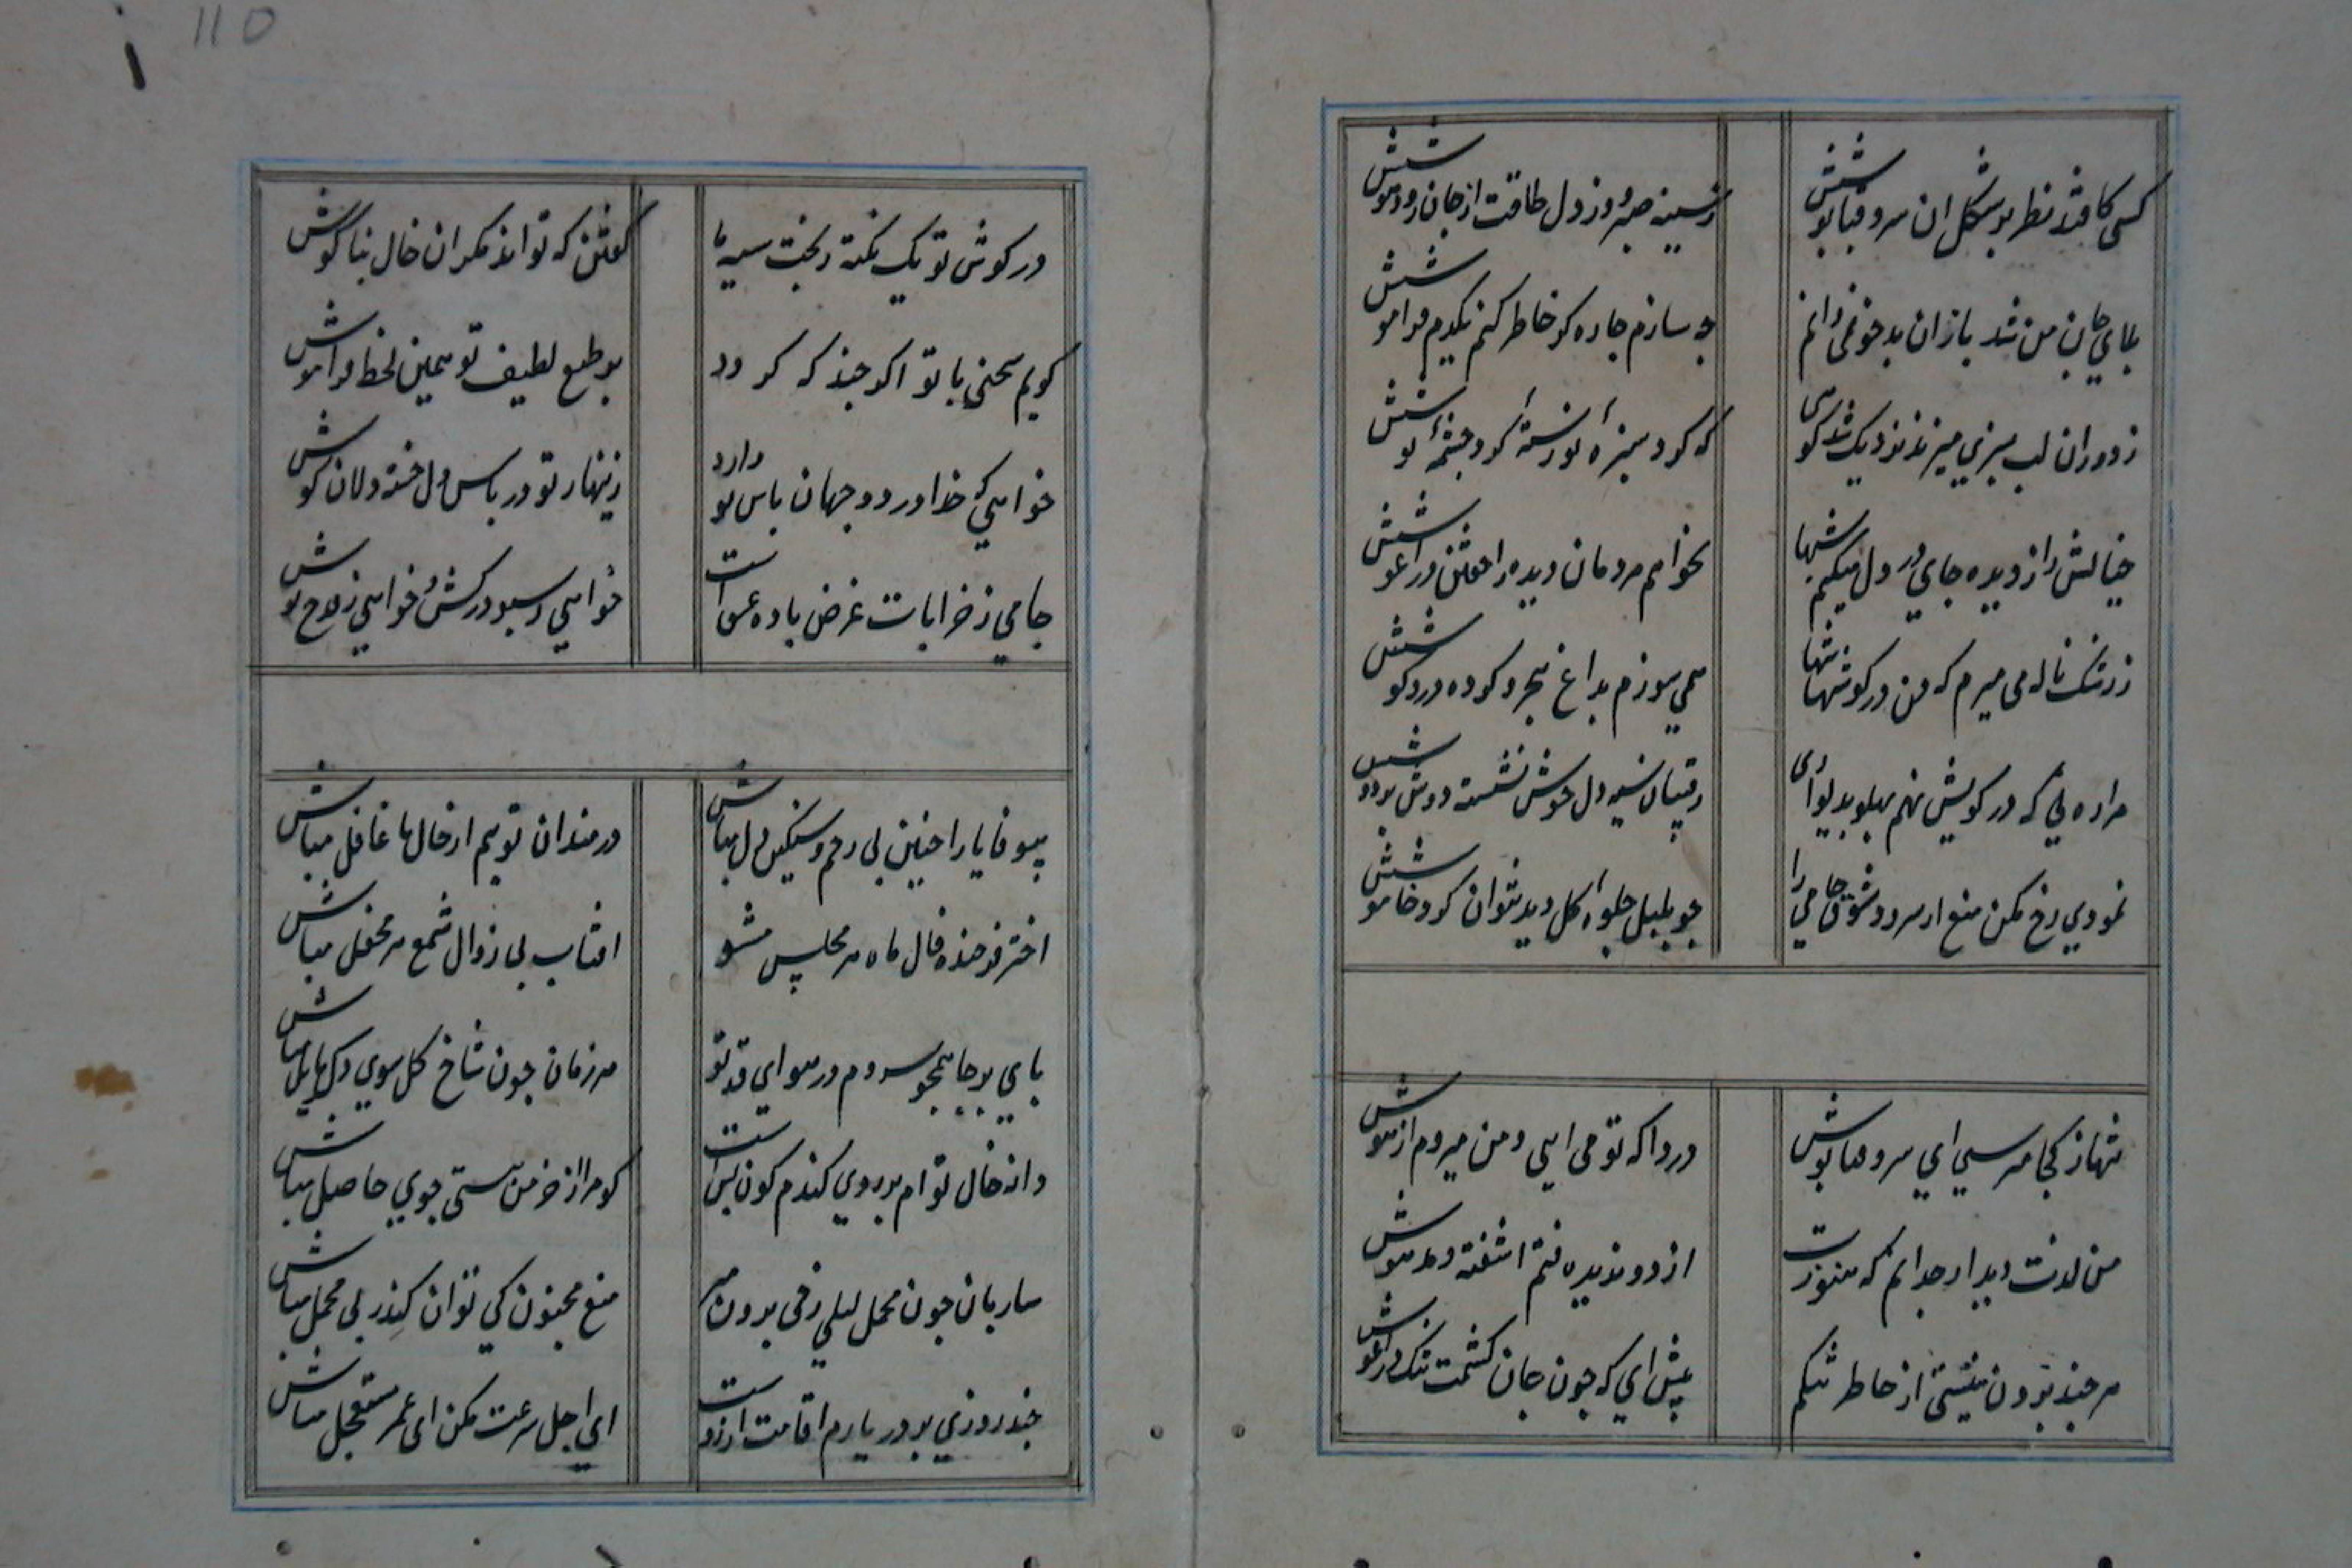 کسی کافتد نظر بر شکل ان سرو قباپوشش
ز سینه صبر و ز دل طاقت از جان رود هوشش
بلای جان من شد یاد ان بدخو نمی دانم
چه سازم چاره کو خاطر کنم یکدم فراموشش
ز دوران لب سبزی میزند نزدیک شد
که کرد سبزه نورسته کرد چشمه نوشش
خیالش را ز دیده جای در دل میکنم شبها
نخواهم مردمان دیده را خفتن در اغوشش
ز رشک ناله می میرم که من در کو تنها
همی سوزم بداغ هجر و کوده در کوشش
مراده نی که در کویش نهم پهلو بدیواری
رقیبان سیه دل خوش نشسته دوش بر دوشش
نمودی رخ مکن منع از سرود شوق جامی را
چو بلبل جلوه کل دید نتوان کرد خاموشش
تنها ز کجا میرسی ای سرو قباپوش
دردا که تو می ایی و من میروم از هوش
من لذت دیدار چه دانم که هنوزت
از دور ندیده فتم اشفته و مدهوش
هر چند برون نیستی از خاطر تنکم
پیش ای که چون جان کشمت تنک در اغوش
110
در کوش تو یک نکته ز بخت سیه ما
کفتن که تواند مکر ان خال بناکوش
کویم سخنی با تو اکر چند که کردد
بر طبع لطیف تو همین لحظه فراموش
خواهی که خدا در دو جهان پاس تو دارد
زینهار تو در پاس دل خسته دلان کوش
جامی ز خرابات غرض باده عشق است
خواهی ز سبو درکش و خواهی ز قدح نوش
بیوفا یارا چنین بی رحم و سنکین دل مباش
درمندان توییم از حال ما غافل مباش
اختر فرخنده فال ماه هر مجلس مشو
افتاب بی زوال شمع هر محفل مباش
پای بر جا همچو سروم در هوای قد تو
هر زمان چون شاخ کل سوی دکر مایل مباش
دانه خال توام بر روی کندم کون بس است
کو مرا از خرمن هستی جوی حاصل مباش
ساربان چون محمل لیلی ز حی بیرون مبر
منع مجنون کی توان کفتن در پی محمل مباش
چند روزی بر در یارم اقامت ارزوست
ای اجل سرعت مکن ای عمر مستعجل مباش